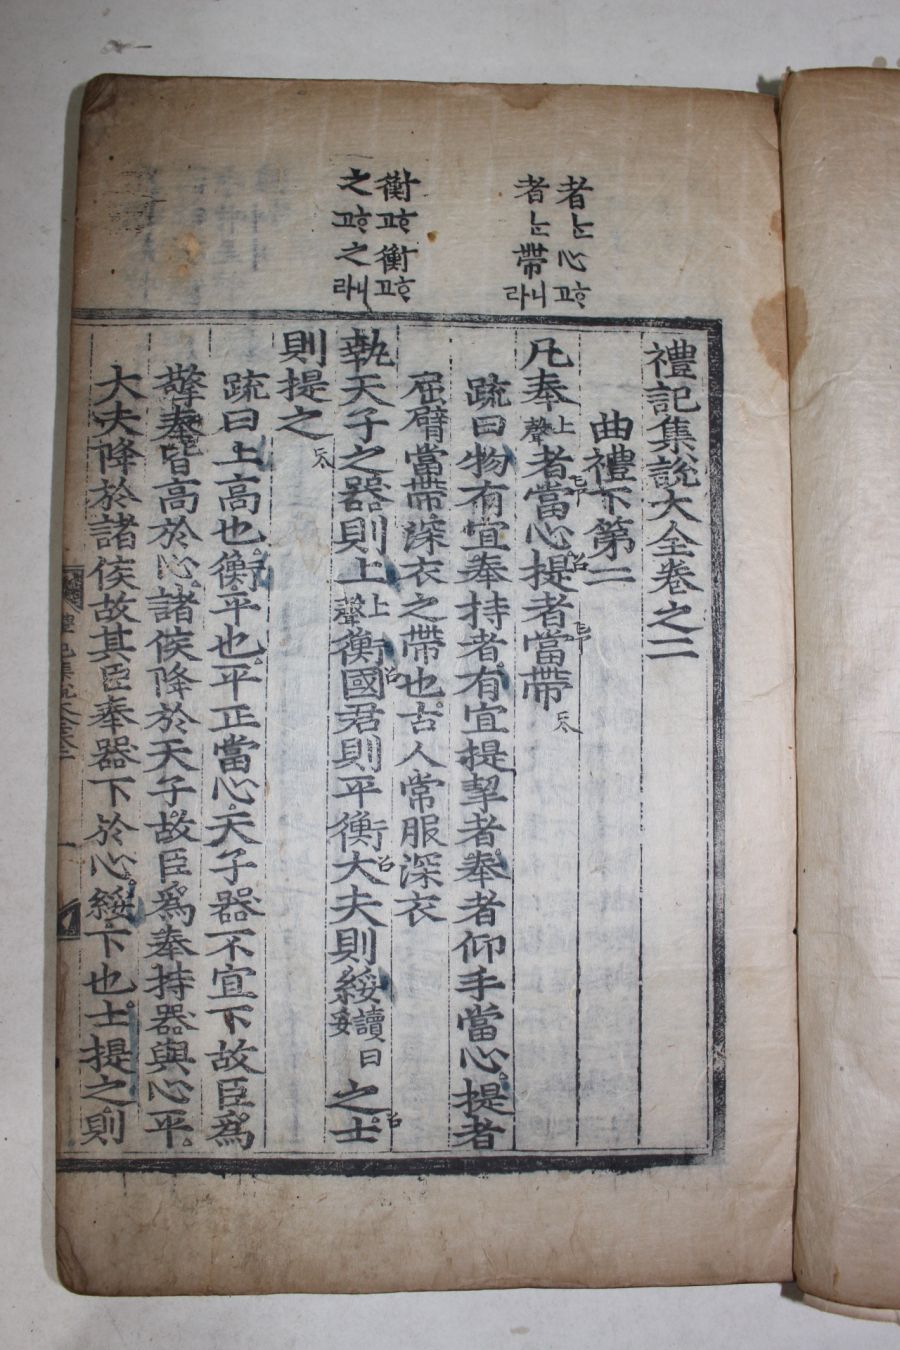 者는心고
者는帶라니
衡고衡고
之고之라니
禮記集說大全卷之二
曲禮下第二
凡奉上聲者當心提者當帶
疏曰物有宜奉持者有宜提挈者奉者仰手當心提者
屈臂當帶深衣之帶也古人常服深衣
執天子之器則上上聲衡國君則平衡大夫則綏讀曰妥之士
則提之
疏曰上高也衡平也平正當心天子器不宜下故臣爲
擎奉皆高於心諸侯降於天子故臣爲奉持器與心平
大夫降於諸侯故其臣奉器下於心綏下也士提之則